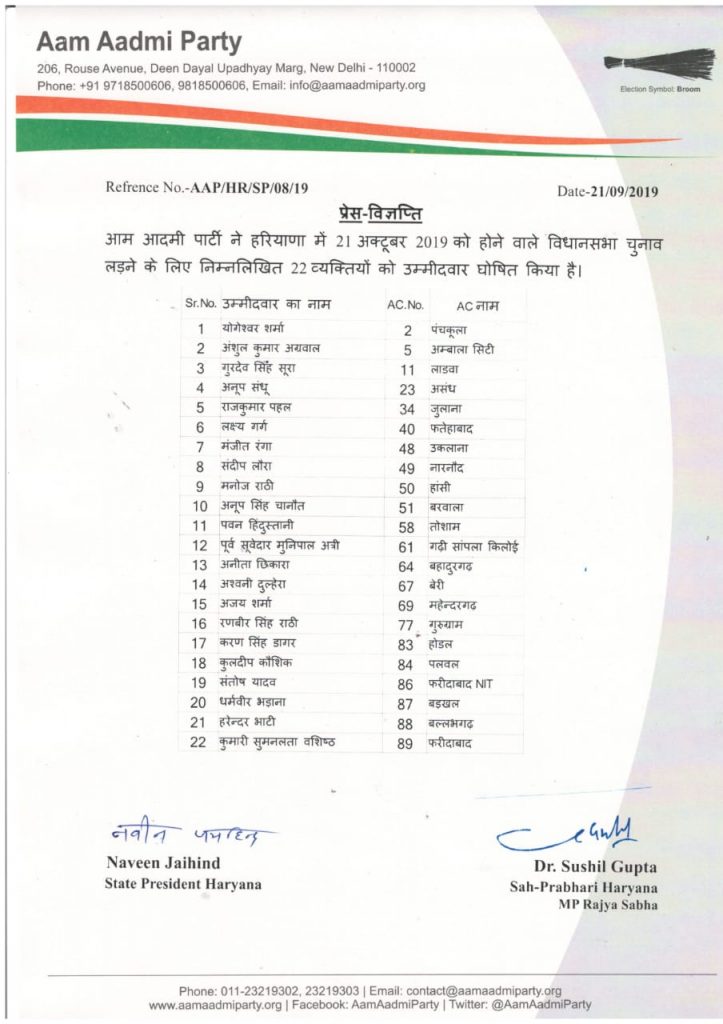 Aam Aadmi Party
206, Rouse Avenue, Deen Dayal Upadhyay Marg, New Delhi - 110002
Phone: +91 9718500606, 9818500606, Email: info@aamaadmiparty.org
Election Symbol: Broom
Refrence No.-AAP/HR/SP/08/19 Date-21/09/2019
प्रेस-विज्ञप्ति
आम आदमी पार्टी ने हरियाणा में 21 अक्टूबर 2019 को होने वाले विधानसभा चुनाव
लड़ने के लिए निम्नलिखित 22 व्यक्तियों को उम्मीदवार घोषित किया है।
Sr.No. उम्मीदवार का नाम AC.No. AC नाम
1 योगेश्वर शर्मा 2 पंचकूला
2 अंशुल कुमार अग्रवाल 5 अम्बाला सिटी
3 गुरदेव सिँह सूरा 11 लाडवा
4 अनूप संधू 23 असंध
5 राजकुमार पहल 34 जुलाना
6 लक्ष्य गर्ग 40 फतेहाबाद
7 मंजीत रंगा 48 उकलाना
8 संदीप लौरा 49 नारनौद
9 मनोज राठी 50 हांसी
10 अनूप सिंह चानौत 51 बरवाला
11 पवन हिंदुस्तानी 58 तोशाम
12 पूर्व सूवेदार मुनिपाल अत्री 61 गढ़ी सांपला किलोई
13 अनीता छिकारा 64 बहादुरगढ़
14 अश्वनी दुल्हेरा 67 बेरी
15 अजय शर्मा 69 महेन्दरगढ
16 रणबीर सिंह राठी 77 गुरुग्राम
17 करण सिंह डागर 83 होडल
18 कुलदीप कौशिक 84 पलवल
19 संतोष यादव 86 फरीदाबाद NIT
20 धर्मवीर भड़ाना 87 बड़खल
21 हरेन्दर भाटी 88 बल्लभगढ़
22 कुमारी सुमनलता वशिष्ठ 89 फरीदाबाद
नवीन जयहिन्द
Naveen Jaihind
State President Haryana
Dr. Sushil Gupta
Sah-Prabhari Haryana
MP Rajya Sabha
Phone: 011-23219302, 23219303 | Email: contact@aamaadmiparty.org
www.aamaadmiparty.org | Facebook: AamAadmiParty | Twitter: @AamAadmiParty